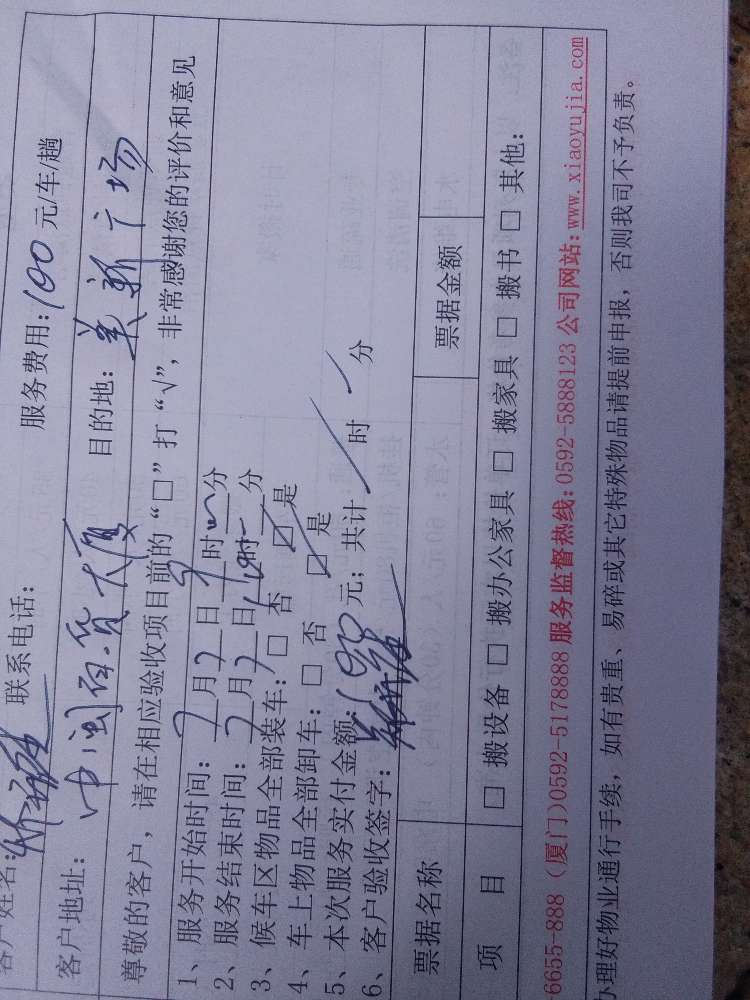 客户姓名: 联系电话: 服务费用:100元/车/趟
客户地址: 中闽百货大厦 目的地: 美新广场
尊敬的客户，请在相应验收项目前的“□”打“√”，非常感谢您的评价和意见
1、服务开始时间: 7月7日9时 分
2、服务结束时间: 7月7日 时 分
3、候车区物品全部装车: □ 否 ☑ 是
4、车上物品全部卸车: □ 否 ☑ 是
5、本次服务实付金额: 100元; 共计 / 时 / 分
6、客户验收签字:
票据名称 票据金额
项 目 □ 搬设备 □ 搬办公家具 □ 搬家具 □ 搬书 □ 其他:
6655-888 (厦门)0592-5178888 服务监督热线:0592-5888123 公司网站:www.xiaoyujia.com
办理好物业通行手续，如有贵重、易碎或其它特殊物品请提前申报，否则我司不予负责。